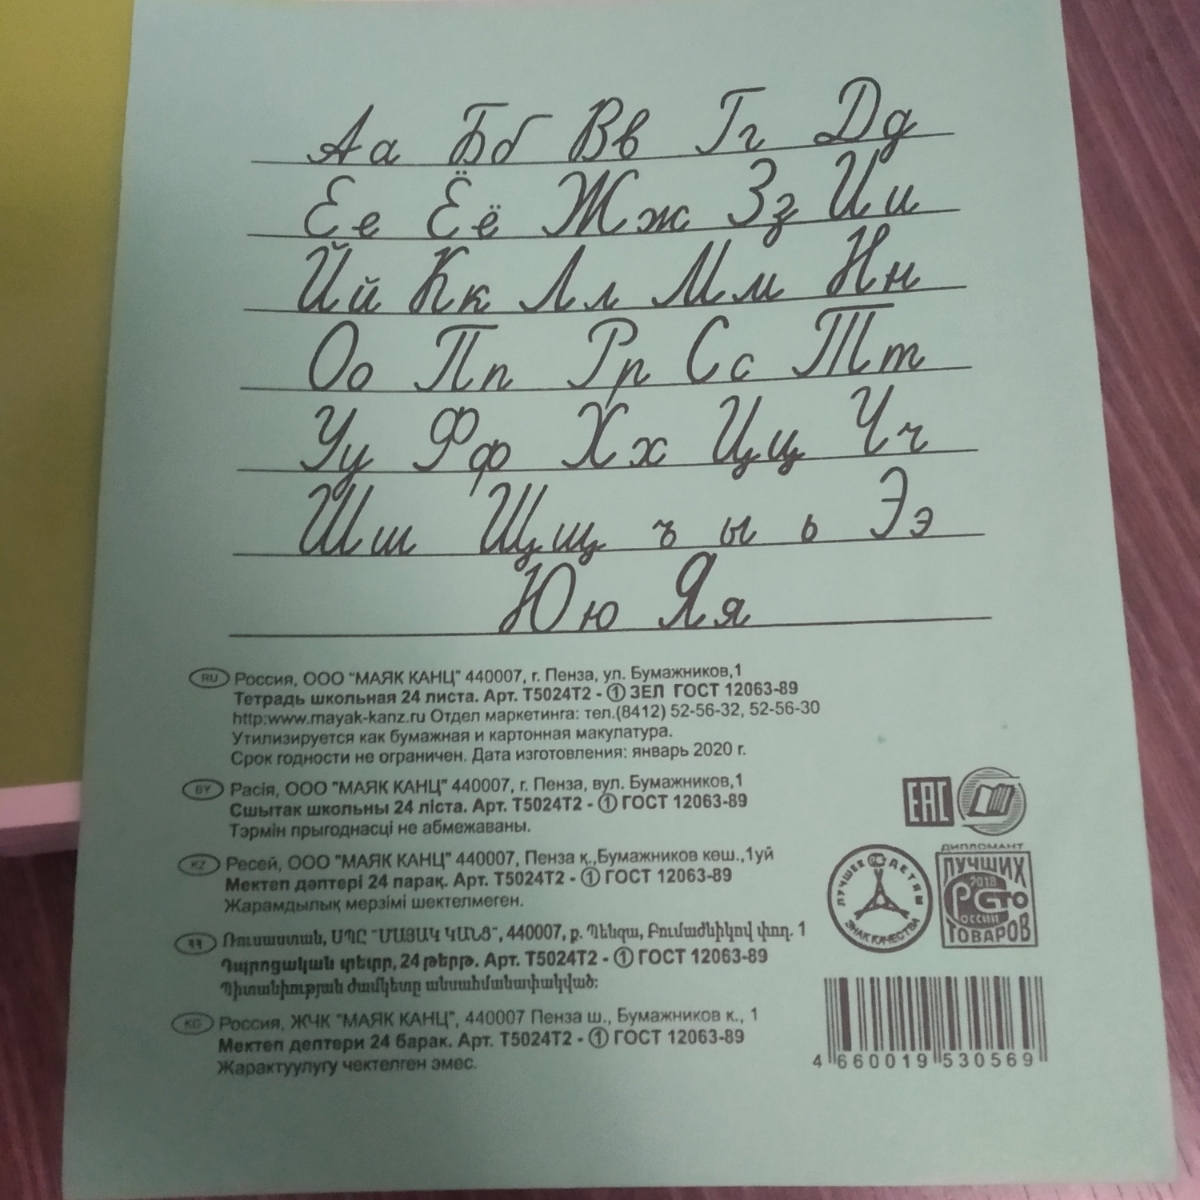 Аа Бб Вв Гг Дд
Ее Ёё Жж Зз Ии
Йй Кк Лл Мм Нн
Оо Пп Рр Сс Тт
Уу Фф Хх Цц Чч
Шш Щщ ъ ы ь Ээ
Юю Яя
RU Россия, ООО "МАЯК КАНЦ" 440007, г. Пенза, ул. Бумажников,1
Тетрадь школьная 24 листа. Арт. Т5024Т2 - ① ЗЕЛ ГОСТ 12063-89
http:www.mayak-kanz.ru Отдел маркетинга: тел.(8412) 52-56-32, 52-56-30
Утилизируется как бумажная и картонная макулатура.
Срок годности не ограничен. Дата изготовления: январь 2020 г.
BY Расія, ООО "МАЯК КАНЦ" 440007, г. Пенза, вул. Бумажников,1
Сшытак школьны 24 ліста. Арт. Т5024Т2 - ① ГОСТ 12063-89
Тэрмін прыгоднасці не абмежаваны.
KZ Ресей, ООО "МАЯК КАНЦ" 440007, Пенза қ.,Бумажников көш.,1үй
Мектеп дәптері 24 парақ. Арт. Т5024Т2 - ① ГОСТ 12063-89
Жарамдылық мерзімі шектелмеген.
Ռուսաստան, ՍՊԸ "ՄԱՅԱԿ ԿԱՆՑ", 440007, ք. Պենզա, Բումաժնիկով փող. 1
Դպրոցական տետր, 24 թերթ. Арт. Т5024Т2 - ① ГОСТ 12063-89
Պիտանիության ժամկետը անսահմանափակված:
KG Россия, ЖЧК "МАЯК КАНЦ", 440007 Пенза ш., Бумажников к., 1
Мектеп дептери 24 барак. Арт. Т5024Т2 - ① ГОСТ 12063-89
Жарактуулугу чектелген эмес.
ЕАС
ЛУЧШЕЕ ДЕТЯМ
ЗНАК КАЧЕСТВА
ДИПЛОМАНТ
ЛУЧШИХ
2018
СТО
РОССИИ
ТОВАРОВ
4 660019 530569